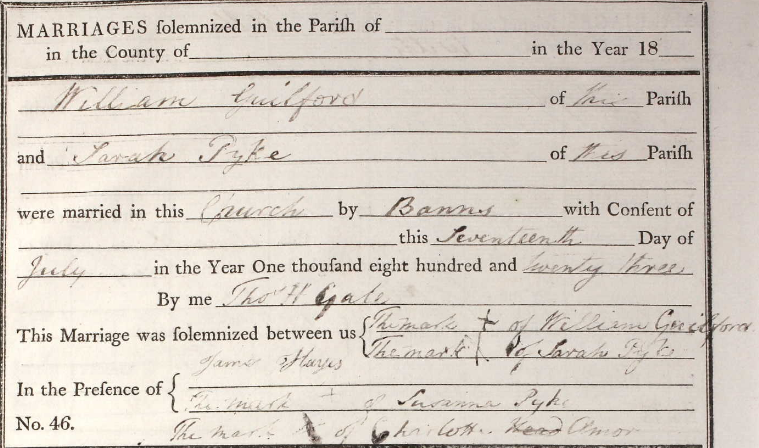 MARRIAGES ſolemnized in the Pariſh of
in the County of in the Year 18
William Guilford of this Pariſh
and Sarah Pyke of this Pariſh
were married in this Church by Banns with Conſent of
this Seventeenth Day of
July in the Year One thouſand eight hundred and twenty three
By me Thos W Gale
This Marriage was ſolemnized between us { The mark + of William Guilford
The mark of Sarah Pyke
James Hayes
In the Preſence of {
The mark + of Susanna Pyke
No. 46.
The mark of Charlotte Head Amor